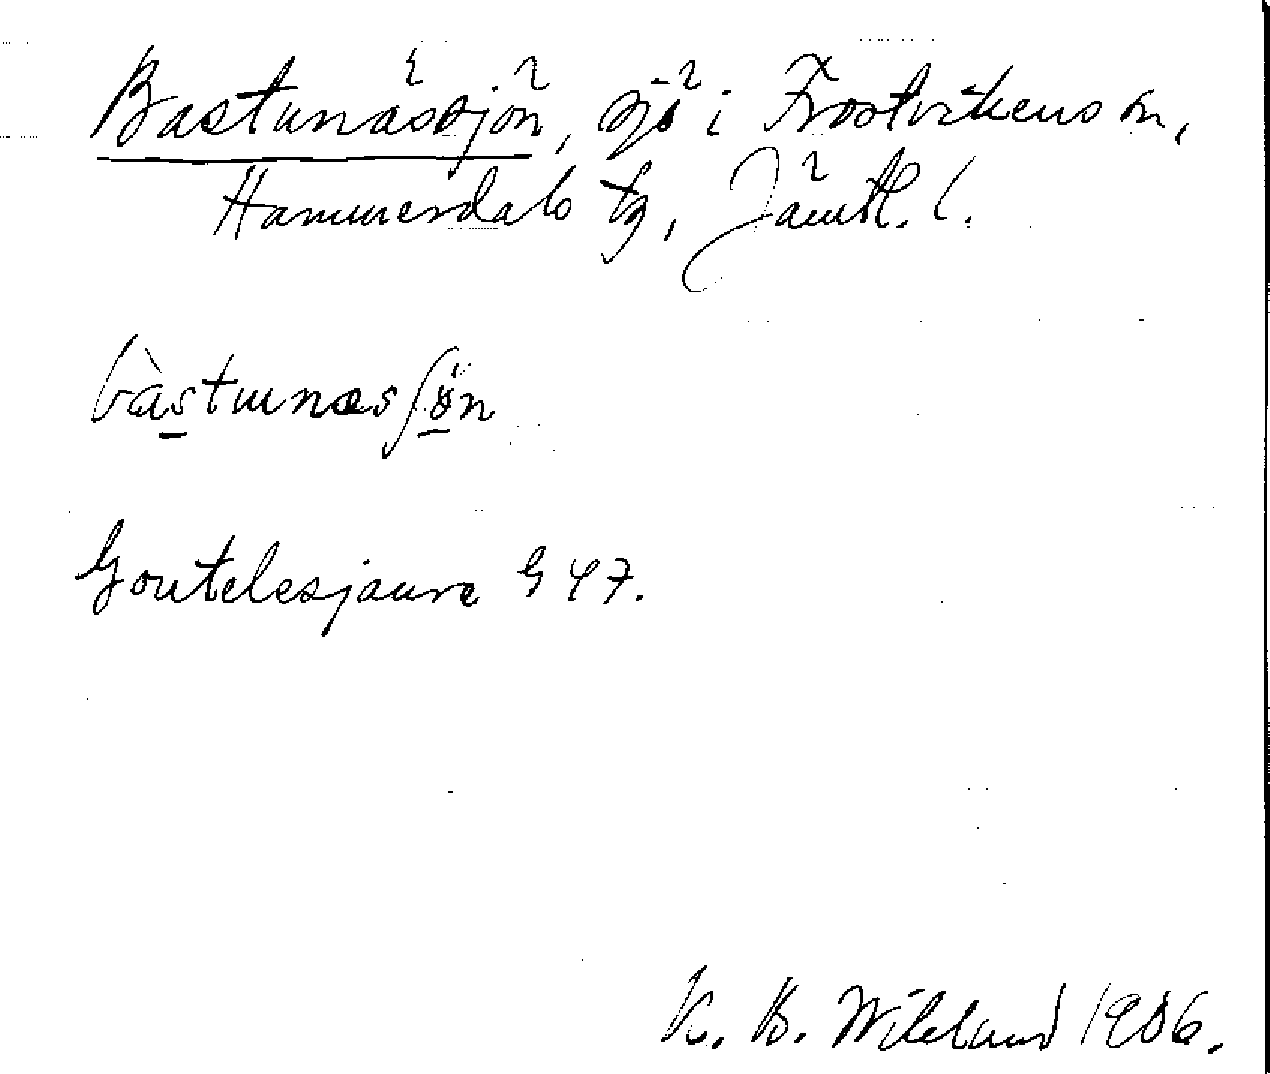 Bastunässjön, sjö i Frostvikens sn,
Hammerdals tg, Jämtl. l.
bàstunæsʃön
Goutelesjaure § 47.
K. B. Wiklund 1906.